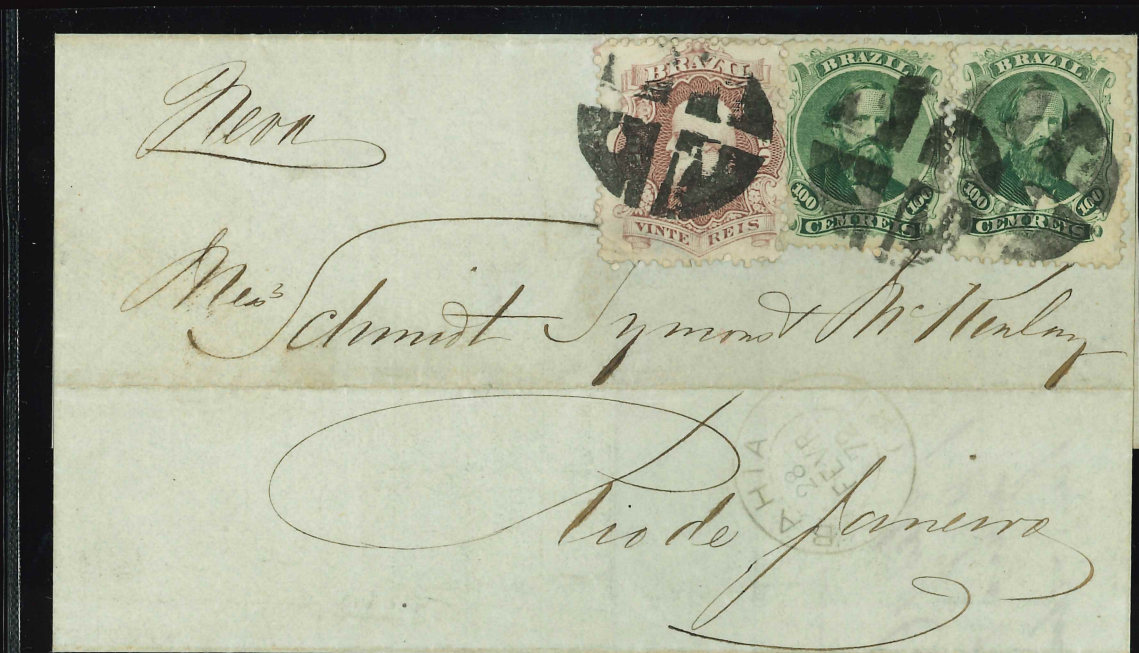 Neva
BRAZIL
VINTE REIS
BRAZIL
100 100
CEM REIS
BRAZIL
100 100
CEM REIS
Mess Schmidt Symons & McKenlay
BAHIA
28
FEVR
Rio de Janeiro